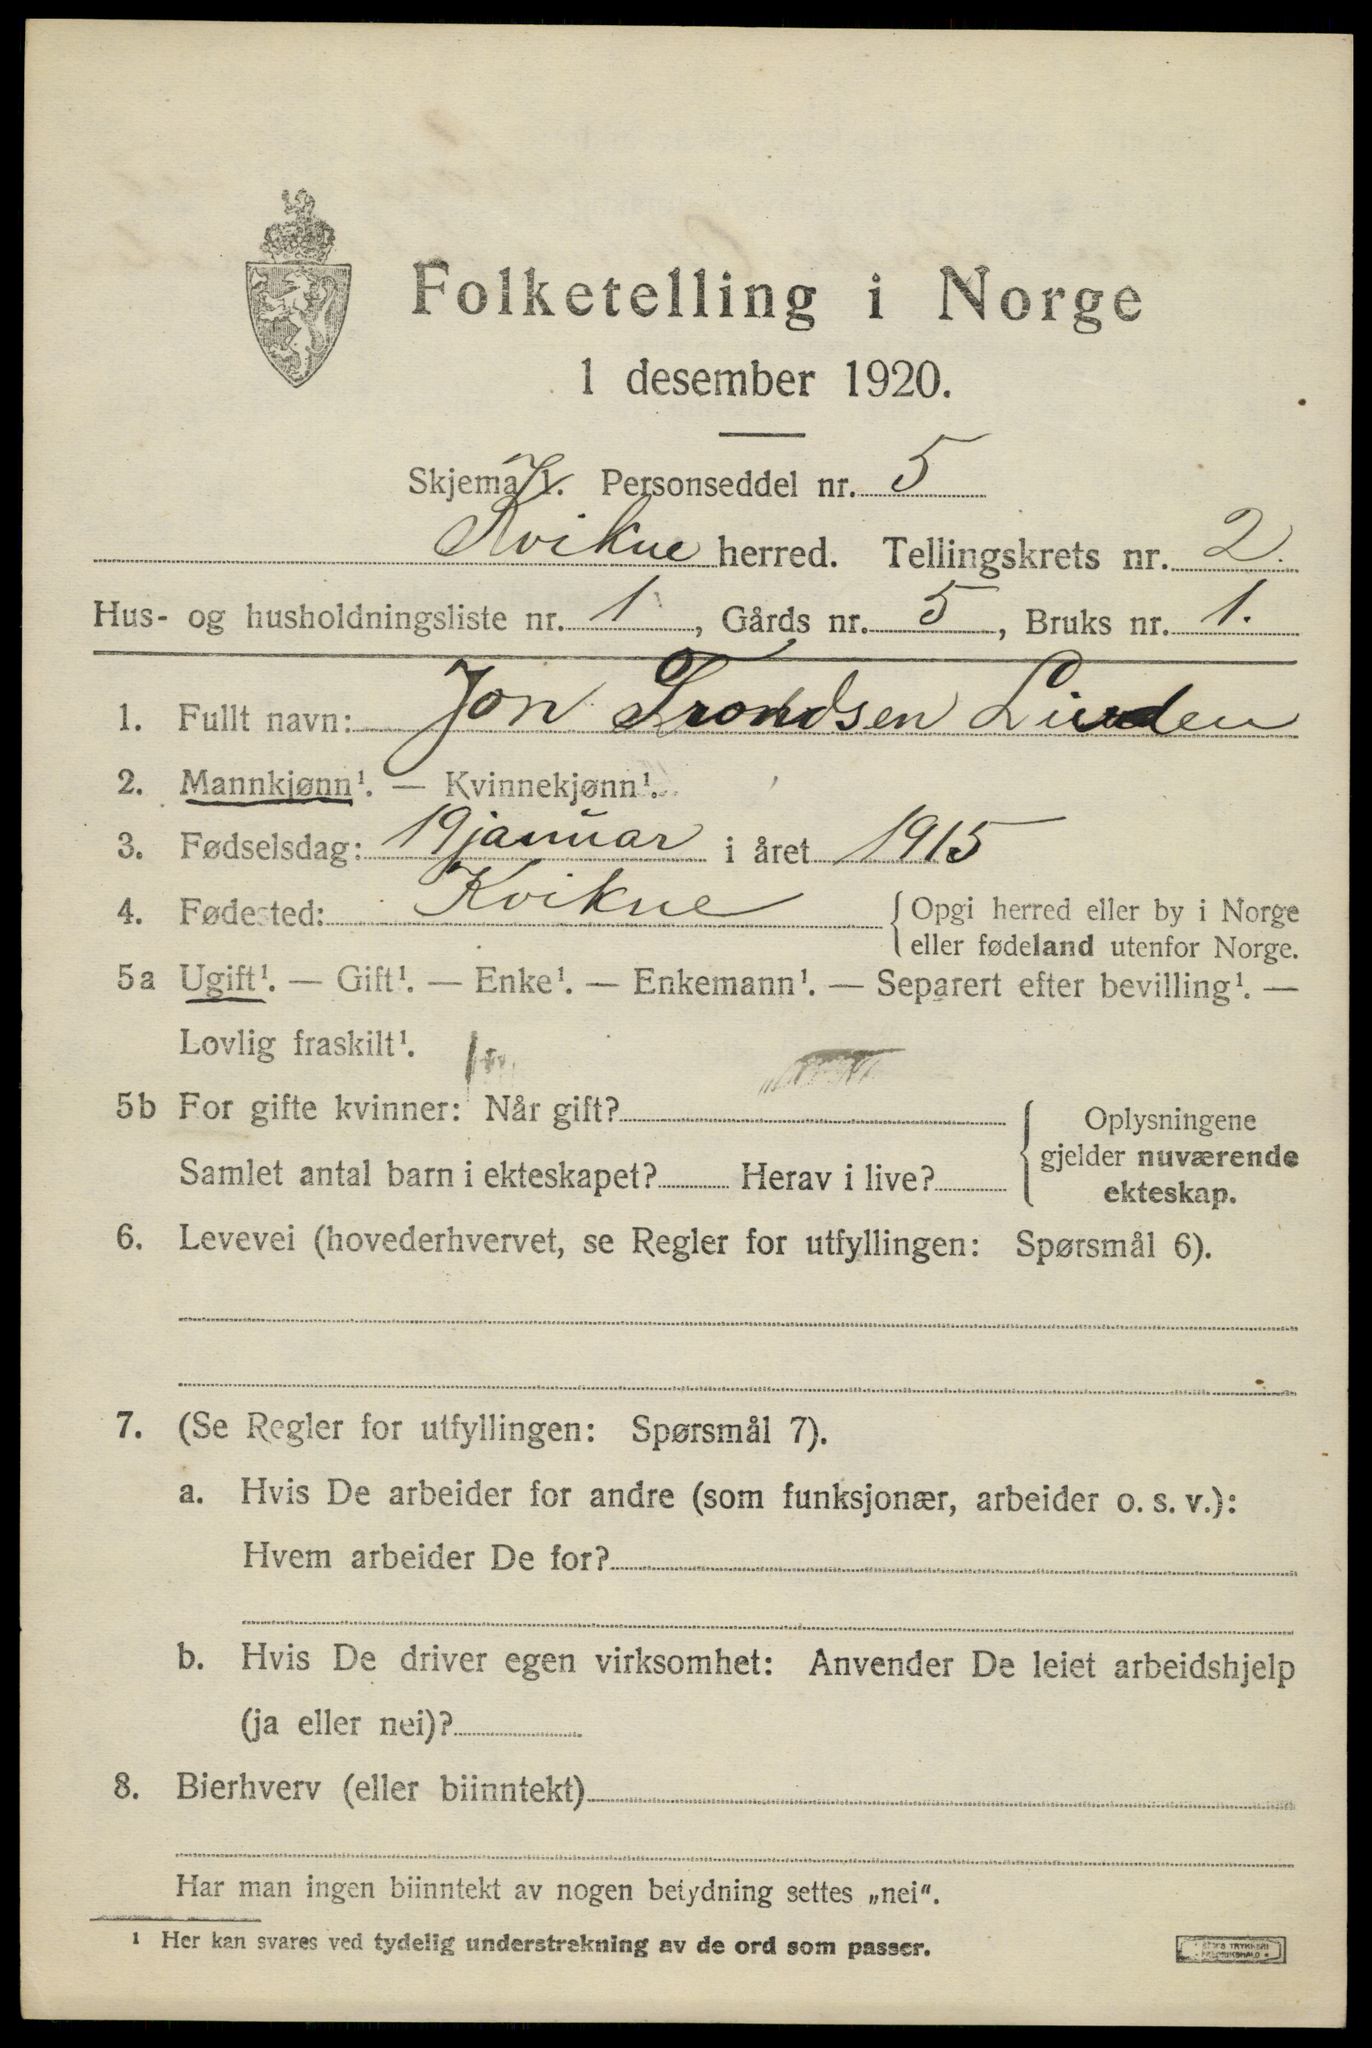 Folketelling i Norge
1 desember 1920.
Skjema 1. Personseddel nr. 5
Kvikne herred. Tellingskrets nr. 2.
Hus- og husholdningsliste nr. 1, Gårds nr. 5, Bruks nr. 1.
1. Fullt navn: Jon Trondsen Linden
2. Mannkjønn¹. — Kvinnekjønn¹.
3. Fødselsdag: 19 januar i året 1915
4. Fødested: Kvikne {Opgi herred eller by i Norge
eller fødeland utenfor Norge.
5a Ugift¹. — Gift¹. — Enke¹. — Enkemann¹. — Separert efter bevilling¹. —
Lovlig fraskilt¹.
5b For gifte kvinner: Når gift? { Oplysningene
gjelder nuværende
Samlet antal barn i ekteskapet? Herav i live? ekteskap.
6. Levevei (hovederhvervet, se Regler for utfyllingen: Spørsmål 6).
7. (Se Regler for utfyllingen: Spørsmål 7).
a. Hvis De arbeider for andre (som funksjonær, arbeider o. s. v.):
Hvem arbeider De for?
b. Hvis De driver egen virksomhet: Anvender De leiet arbeidshjelp
(ja eller nei)?
8. Bierhverv (eller biinntekt)
Har man ingen biinntekt av nogen betydning settes „nei“.
¹ Her kan svares ved tydelig understrekning av de ord som passer.